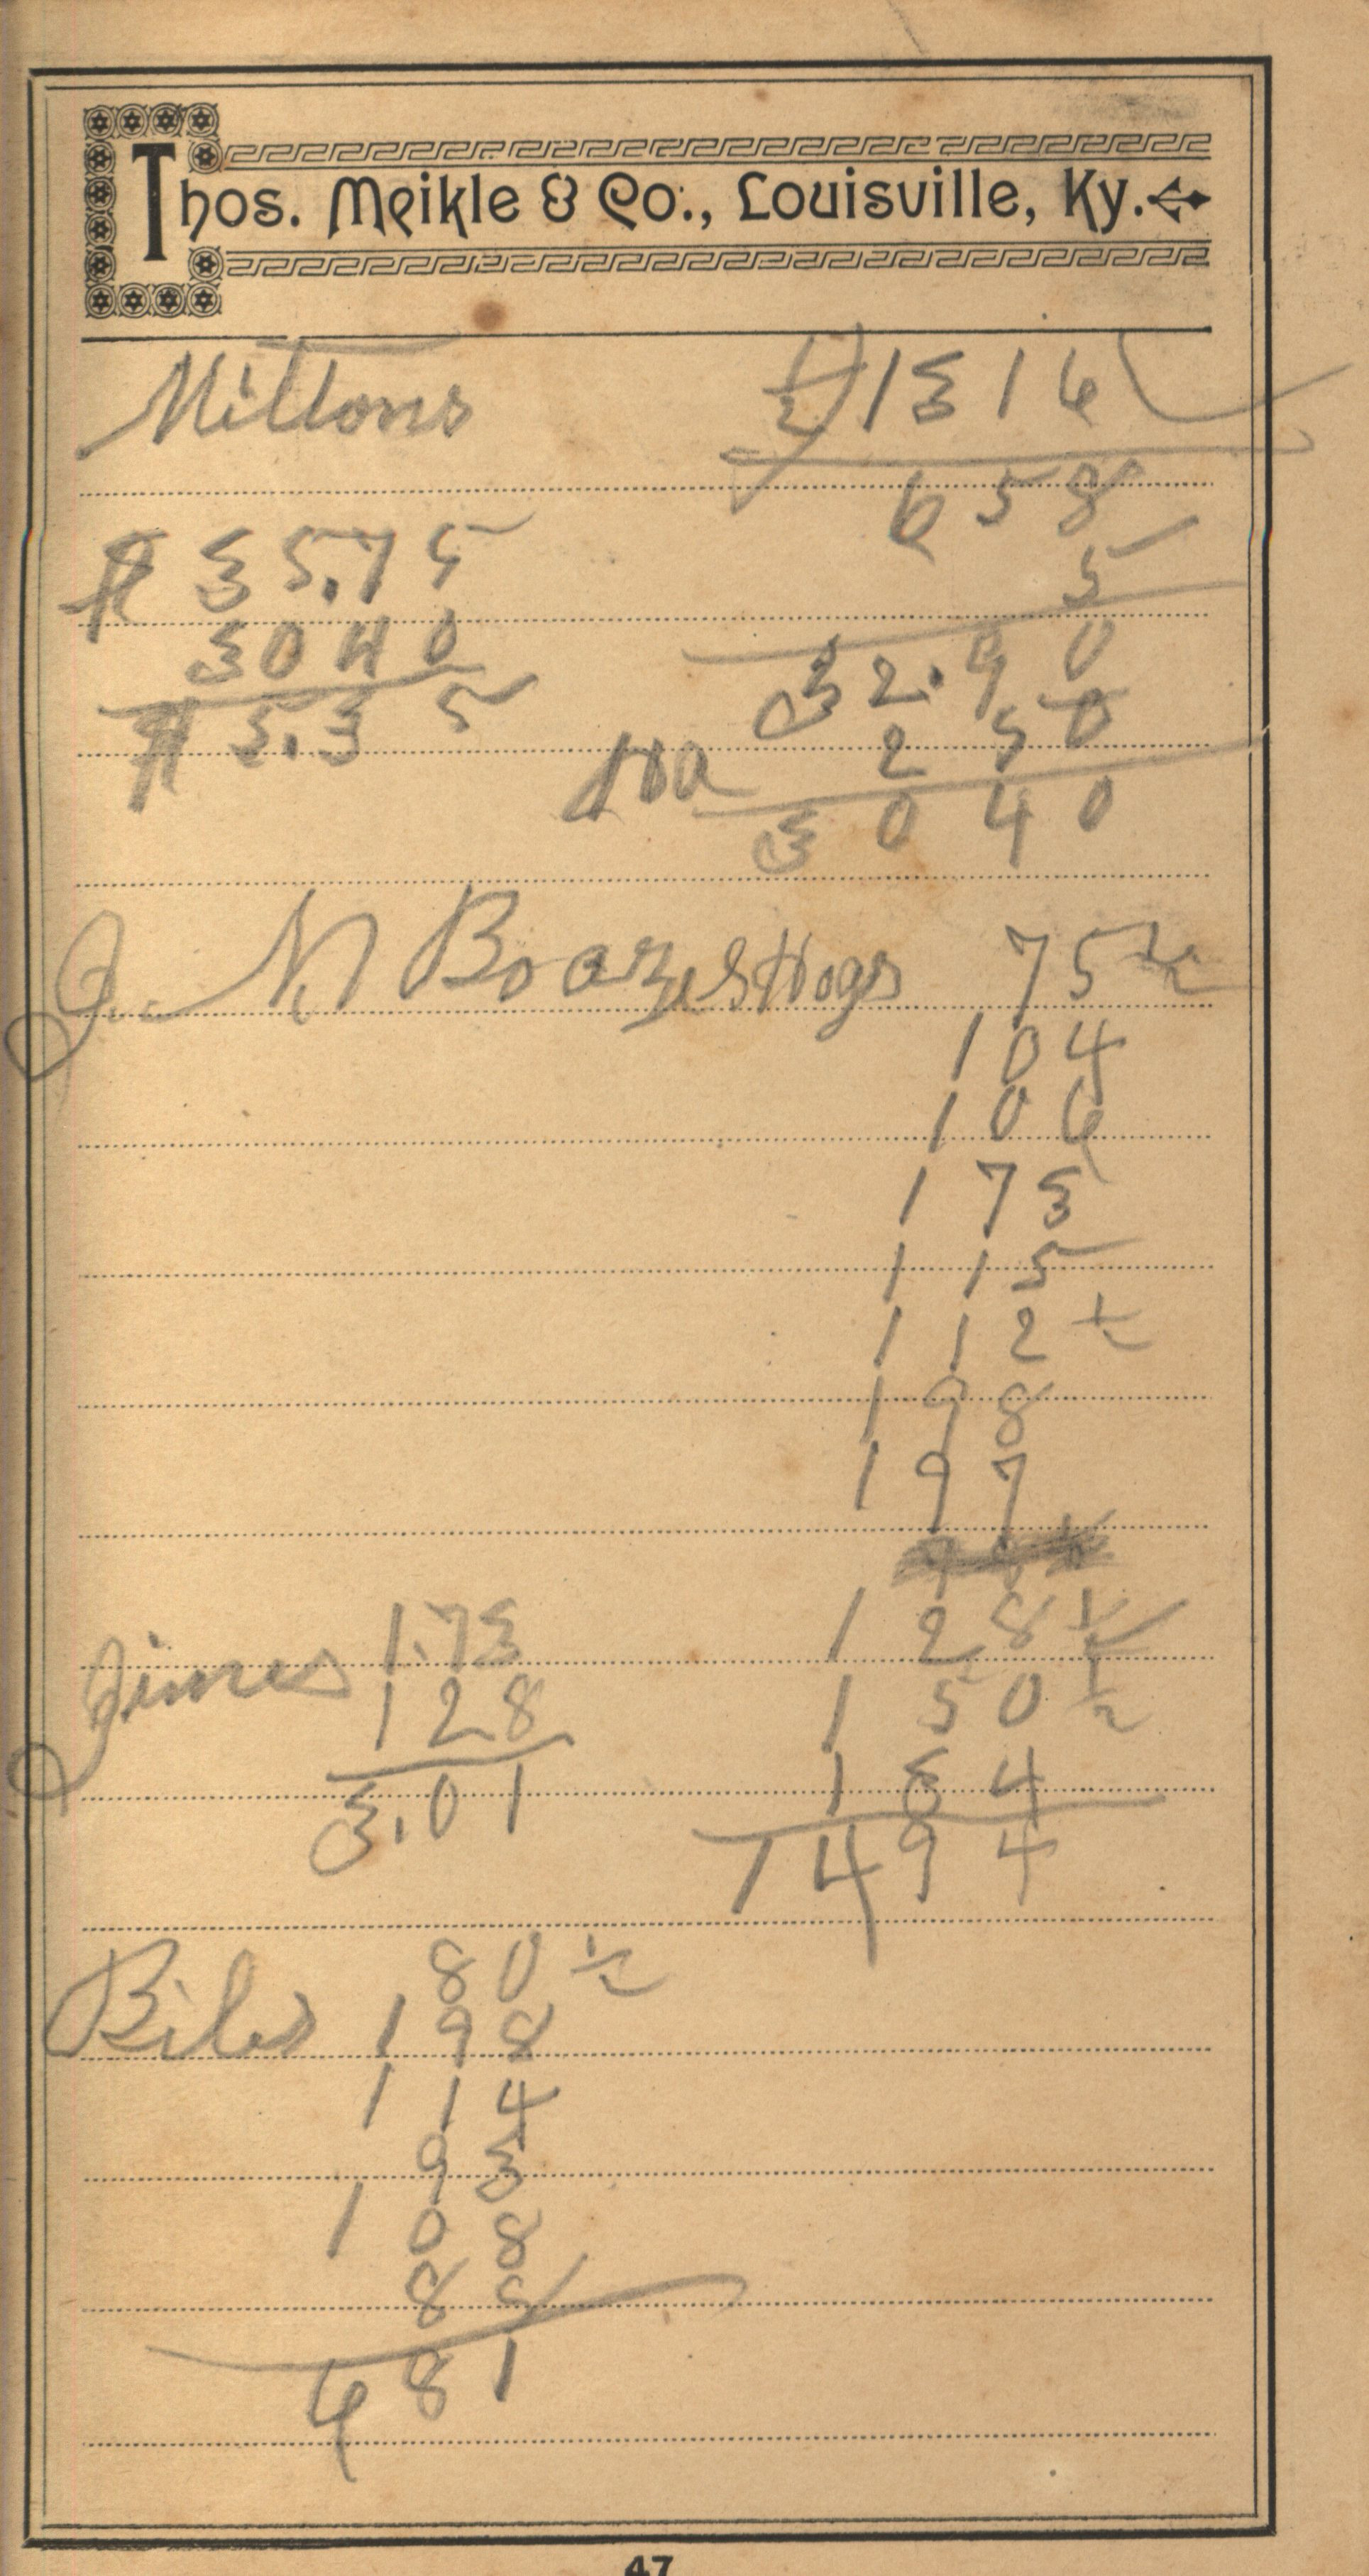 Thos. Meikle & Co., Louisville, Ky.
Miltons ½ 1316
658
$ 35.75 5
3040 32.90
$ 5.35 250
3040
J. N. Boaz Hogs 75½
104
106
173
115
112½
198
197
128½
Jimes 1.73 150½
128 134
3.01 1494
80½
Biles 198
114
93
108
88
681
47